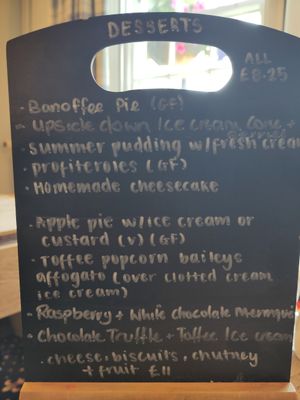 DESSERTS
ALL
£8.25
· Banoffee Pie (GF)
- Upside down Ice cream Cone +
· summer pudding w/fresh cream
· profiteroles (GF)
· Homemade cheesecake
· Apple pie w/ice cream or
custard (v) (GF)
· Toffee popcorn baileys
affogato (over clotted cream
ice cream)
· Raspberry + White chocolate Meringue
· Chocolate Truffle + Toffee Ice cream
· cheese, biscuits, chutney
+ fruit £11